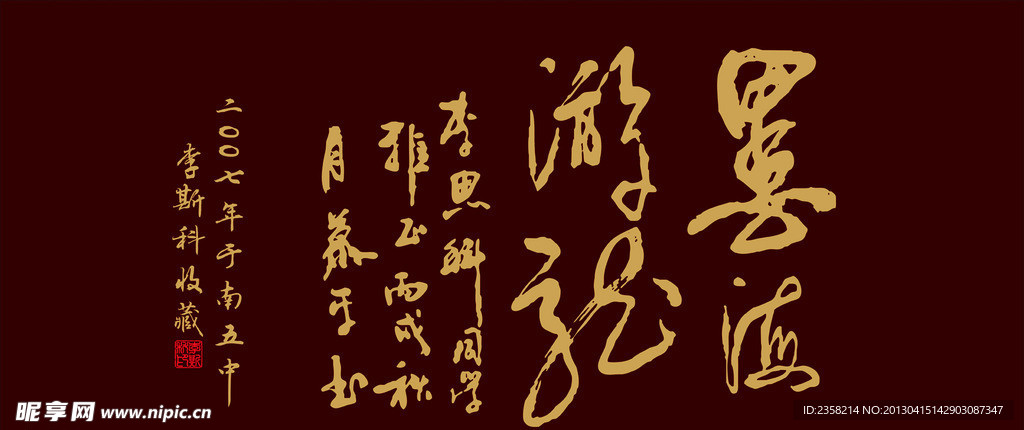 墨海
游龍
李思科同学
雅正丙戌秋
月平书
二〇〇七年于南五中
李斯科收藏
昵享网 www.nipic.cn
ID:2358214 NO:20130415142903087347